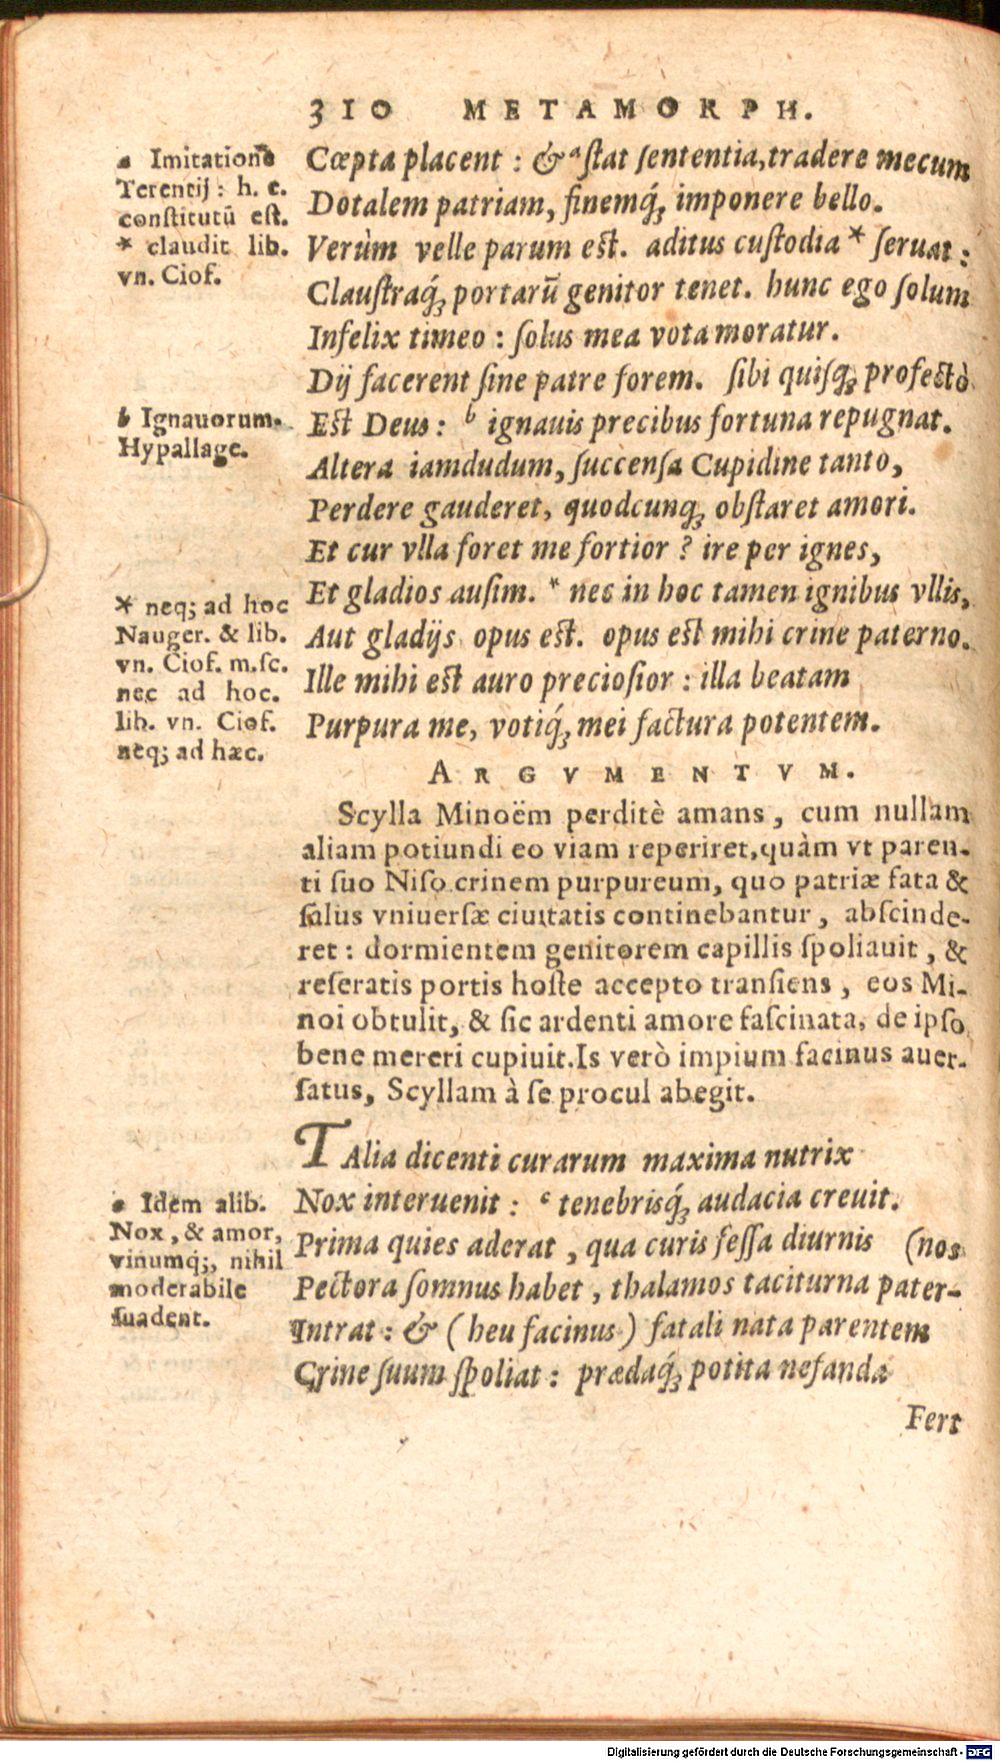 310 METAMORPH.
Cœpta placent : & ᵃ ſtat ſententia, tradere mecum
Dotalem patriam, finemq́; imponere bello.
Verùm velle parum eſt. aditus cuſtodia * ſeruat :
Clauſtraq́; portarū genitor tenet. hunc ego ſolum
Infelix timeo : ſolus mea vota moratur.
Dij facerent ſine patre forem. ſibi quiſq; profectò
Eſt Deus : ᵇ ignauis precibus fortuna repugnat.
Altera iamdudum, ſuccenſa Cupidine tanto,
Perdere gauderet, quodcunq; obſtaret amori.
Et cur vlla foret me fortior ? ire per ignes,
Et gladios auſim. * nec in hoc tamen ignibus vllis,
Aut gladijs opus eſt. opus eſt mihi crine paterno.
Ille mihi eſt auro precioſior : illa beatam
Purpura me, votiq́; mei factura potentem.
a Imitatione
Terentij : h. e.
conſtitutū eſt.
* claudit lib.
vn. Ciof.
b Ignauorum.
Hypallage.
* neq; ad hoc
Nauger. & lib.
vn. Ciof. m.ſc.
nec ad hoc.
lib. vn. Ciof.
neq; ad hæc.
ARGVMENTVM.
Scylla Minoëm perditè amans, cum nullam
aliam potiundi eo viam reperiret, quàm vt paren-
ti ſuo Niſo crinem purpureum, quo patriæ fata &
ſalus vniuerſæ ciuitatis continebantur, abſcinde-
ret : dormientem genitorem capillis ſpoliauit, &
reſeratis portis hoſte accepto tranſiens, eos Mi-
noi obtulit, & ſic ardenti amore faſcinata, de ipſo
bene mereri cupiuit. Is verò impium facinus auer-
ſatus, Scyllam à ſe procul abegit.
TAlia dicenti curarum maxima nutrix
Nox interuenit : ᶜ tenebrisq́; audacia creuit.
Prima quies aderat, qua curis feſſa diurnis (nos
Pectora ſomnus habet, thalamos taciturna pater-
Intrat : & (heu facinus) fatali nata parentem
Crine ſuum ſpoliat : prædaq́; potita nefanda
c Idem alib.
Nox, & amor,
vinumq́;, nihil
moderabile
ſuadent.
Fert
Digitalisierung gefördert durch die Deutsche Forschungsgemeinschaft - DFG